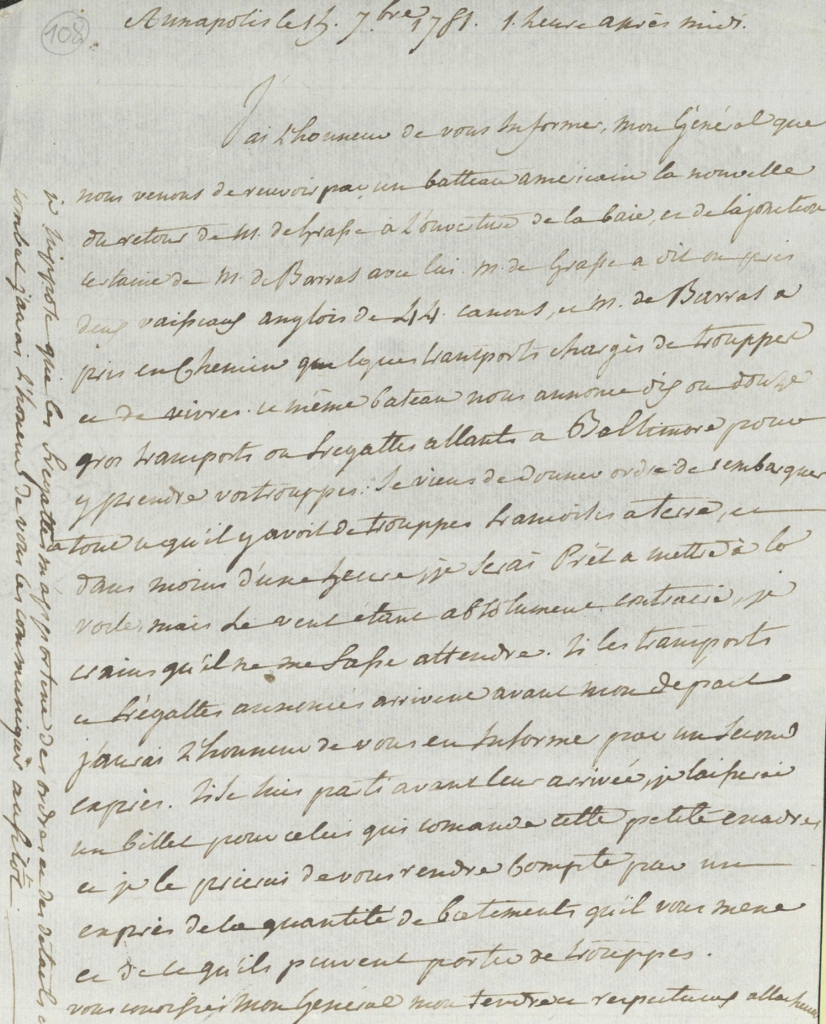 108
Annapolis le 15. 7bre 1781. 1. heure après midi.
J'ai L'honneur de vous Informer, mon Général que
nous venons de recevoir par un batteau americain la nouvelle
du retour de M. de Grasse a L'ouverture de la baie, et de la jonction
certaine de M. de Barras avec lui. M. de Grasse a dit on pris
deux vaisseaux anglois de 44. canons, et M. de Barras a
pris en Chemin quelques transports chargés de trouppes
et de vivres. ce même bateau nous annonce dix ou douze
gros transports ou fregattes allants a Baltimore pour
y prendre vos trouppes. Je viens de donner ordre de rembarquer
tout ce qu'il y avoit de trouppes francoises a terre, et
dans moins d'une heure, je serai Prêt a mettre à la
voile, mais Le vent etant absolument contraire, je
crains qu'il ne me fasse attendre. Si les transports
et frégattes annoncés arrivent avant mon départ
j'aurai L'honneur de vous en Informer par un second
exprès. Si je suis parti avant leur arrivée, je laisserai
un billet pour celui qui comande cette petite escadre,
et je le prierai de vous rendre Compte par un
exprès de la quantité de batements qu'il vous mene
et de ce qu'ils peuvent porter de trouppes.
vous conoissés mon Général mon tendre et respectueux attachement
je suppose que les fregattes m'apportent des ordres et des details
combat j'aurai L'honneur de vous les communiquer aussitôt